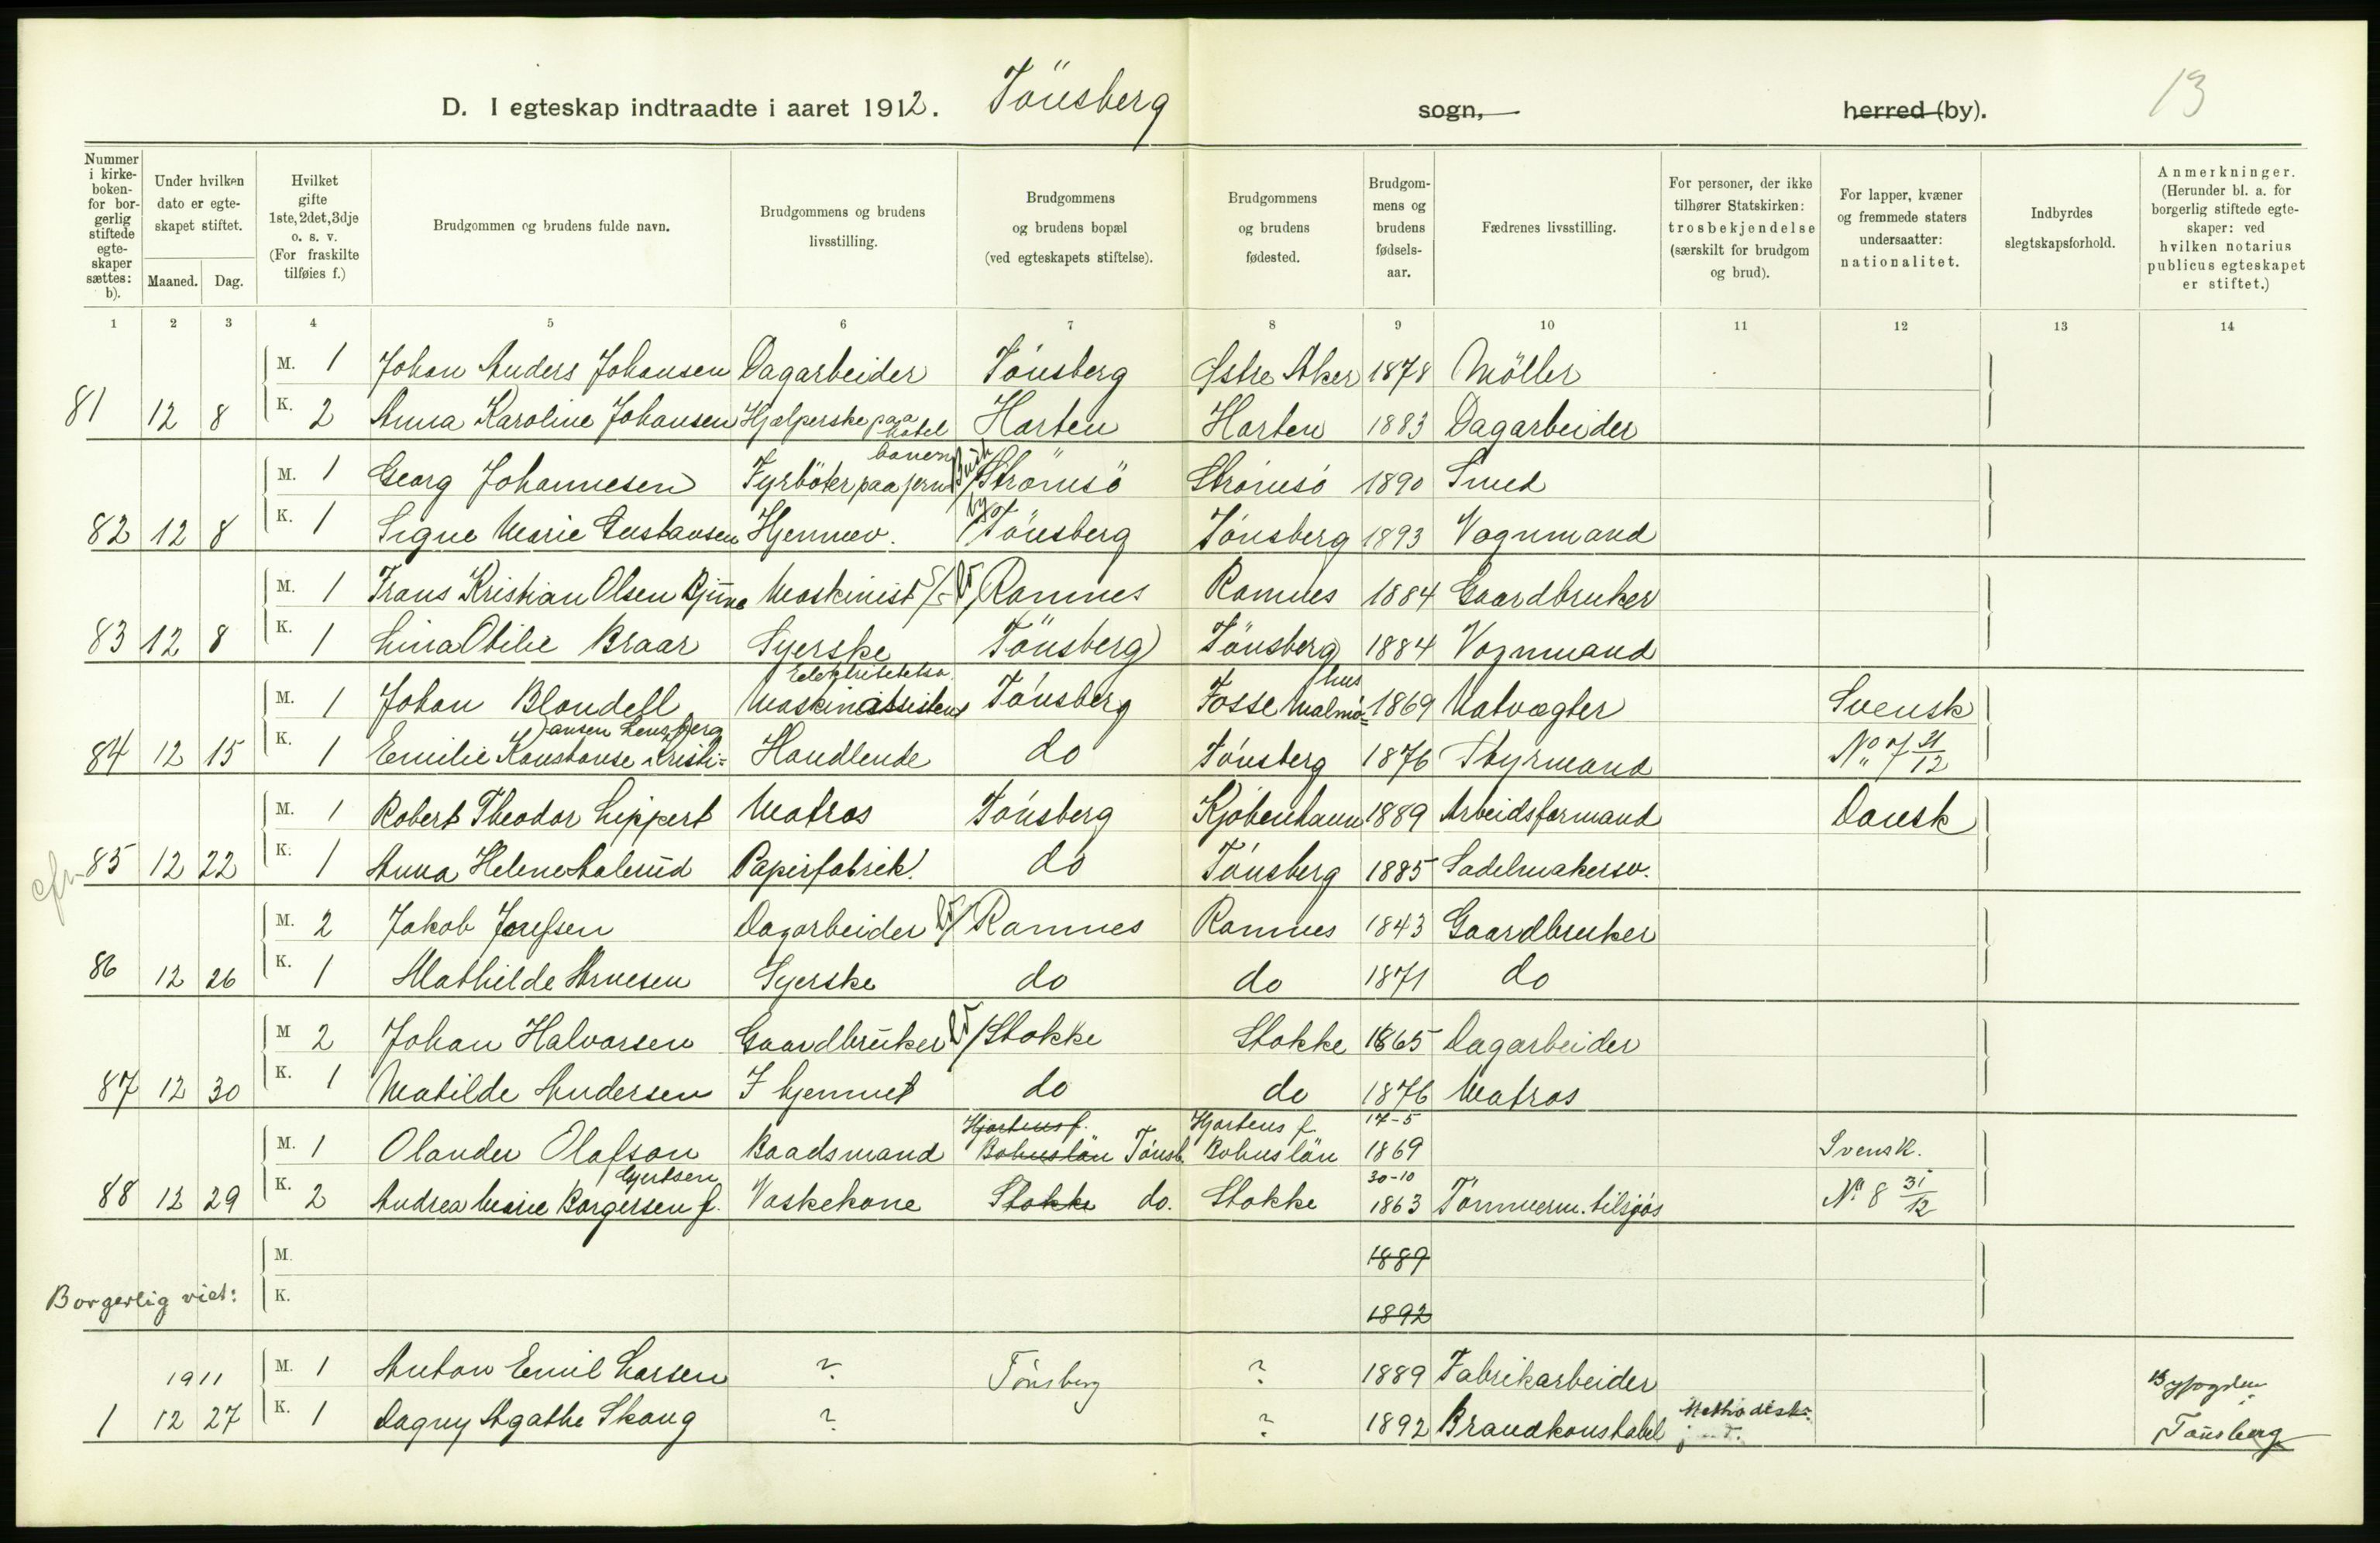 D. I egteskap indtraadte i aaret 1912. Tönsberg sogn, herred (by). 13
Nummer i kirkeboken- for borgerlig stiftede egteskaper sættes: b).
Under hvilken dato er egteskapet stiftet. Maaned. Dag.
Hvilket gifte 1ste, 2det, 3dje o. s. v. (For fraskilte tilføies f.)
Brudgommen og brudens fulde navn.
Brudgommens og brudens livsstilling.
Brudgommens og brudens bopæl (ved egteskapets stiftelse).
Brudgommens og brudens fødested.
Brudgommens og brudens fødselsaar.
Fædrenes livsstilling.
For personer, der ikke tilhører Statskirken: trosbekjendelse (særskilt for brudgom og brud).
For lapper, kvæner og fremmede staters undersaatter: nationalitet.
Indbyrdes slegtskapsforhold.
Anmerkninger. (Herunder bl. a. for borgerlig stiftede egteskaper: ved hvilken notarius publicus egteskapet er stiftet.)
1 2 3 4 5 6 7 8 9 10 11 12 13 14
M. 1 Johan Anders Johansen Dagarbeider Tönsberg Östre Aker 1878 Möller
81 12 8 K. 2 Anna Karoline Johansen Hjælperske paa hotel Horten Horten 1883 Dagarbeider
M. 1 Georg Johannesen Fyrböter paa jernbanen Strömsö Strömsö 1890 Smed
82 12 8 K. 1 Signe Marie Gustavsen Hjemmev. Tönsberg Tönsberg 1893 Vognmand
M. 1 Frans Kristian Olsen Bjune Maskinist Ramnes Ramnes 1884 Gaardbruker
83 12 8 K. 1 Lina Otilie Braar Syerske Tönsberg Tönsberg 1884 Vognmand
M. 1 Johan Blondell Elektricitetsv. Maskinassistent Tönsberg Fosse Malmöhus 1869 Natvægter Svensk
84 12 15 K. 1 Emilie Konstanse Kristiansen Lensberg Handlende do Tönsberg 1876 Styrmand No 7 31/12
M. 1 Robert Theodor Lippert Matros Tönsberg Kjöbenhavn 1889 Arbeidsformand Dansk
cfr 85 12 22 K. 1 Anna Helene Aalerud Papirfabrik. do Tönsberg 1885 Sadelmakersv.
M. 2 Jakob Josefsen Dagarbeider Ramnes Ramnes 1843 Gaardbruker
86 12 26 K. 1 Mathilde Arnesen Syerske do do 1871 do
M 2 Johan Halvorsen Gaardbruker Stokke Stokke 1865 Dagarbeider
87 12 30 K. 1 Matilde Andersen I hjemmet do do 1876 Matros
Hjortens f. Hjortens f. 17-5
M. 1 Olander Olafson Baadsmand Bohuslän Tönsb. Bohuslän 1869 Svensk.
Gjertsen 30-10
88 12 29 K. 2 Andrea Marie Borgersen f. Vaskekone Stokke do. Stokke 1863 Tömmerm. tilsjøs No 8 31/12
M. 1889
Borgerlig viet: K. 1892
1911 M. 1 Anton Emil Larsen ? Tönsberg ? 1889 Fabrikarbeider Byfogden
1 12 27 K. 1 Dagny Agathe Skaug ? ? 1892 Brandkonstabel Methodisk Tönsberg